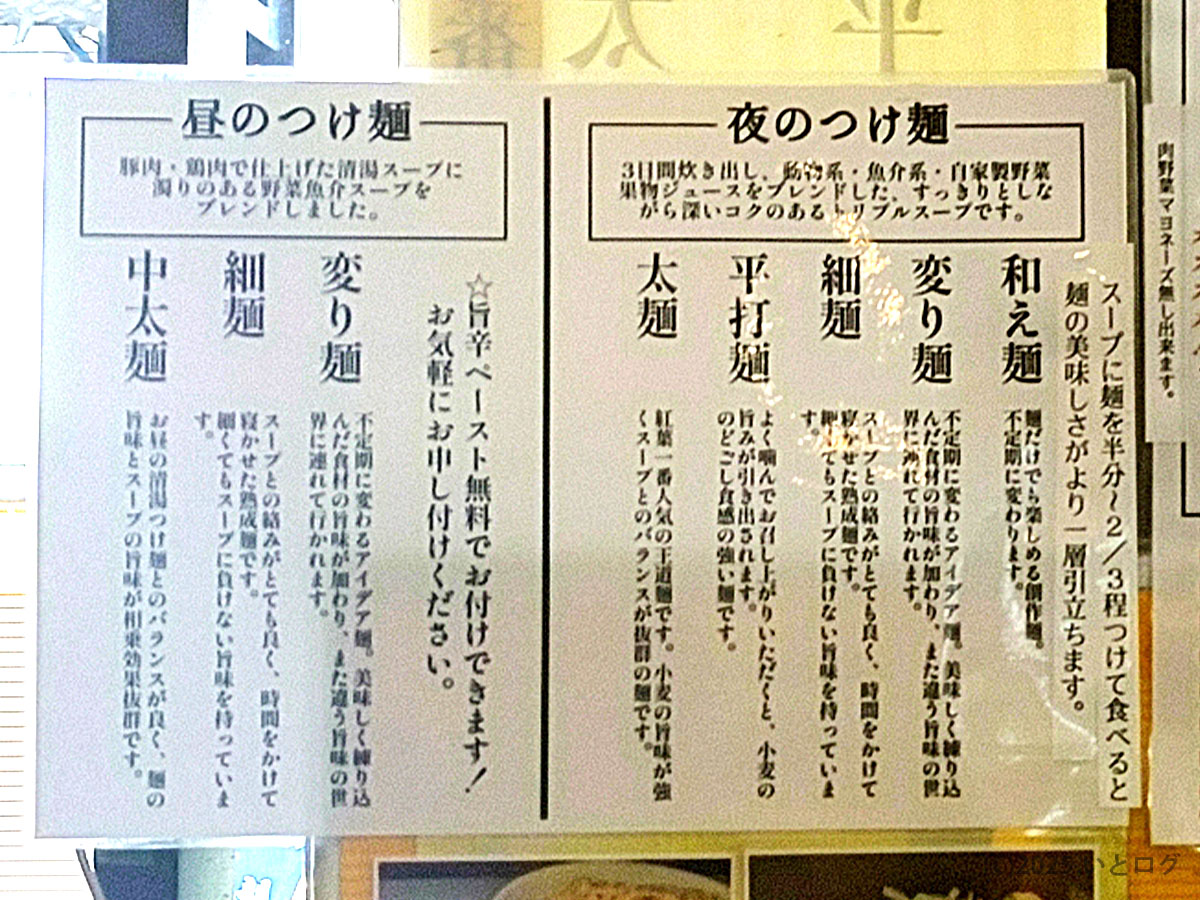 夜のつけ麺
3日間炊き出し、動物系・魚介系・自家製野菜
果物ジュースをブレンドした、すっきりとしな
がら深いコクのあるトリプルスープです。
スープに麺を半分〜2/3程つけて食べると
麺の美味しさがより一層引立ちます。
和え麺
麺だけでも楽しめる創作麺。
不定期に変わります。
変り麺
不定期に変わるアイデア麺。美味しく練り込
んだ食材の旨味が加わり、また違う旨味の世
界に連れて行かれます。
細麺
スープとの絡みがとても良く、時間をかけて
寝かせた熟成麺です。
細くてもスープに負けない旨味を持っていま
す。
平打麺
よく噛んでお召し上がりいただくと、小麦の
旨みが引き出されます。
のどごし食感の強い麺です。
太麺
紅葉一番人気の王道麺です。小麦の旨味が強
くスープとのバランスが抜群の麺です。
昼のつけ麺
豚肉・鶏肉で仕上げた清湯スープに
濁りのある野菜魚介スープを
ブレンドしました。
☆旨辛ペースト無料でお付けできます!
お気軽にお申し付けください。
変り麺
不定期に変わるアイデア麺。美味しく練り込
んだ食材の旨味が加わり、また違う旨味の世
界に連れて行かれます。
細麺
スープとの絡みがとても良く、時間をかけて
寝かせた熟成麺です。
細くてもスープに負けない旨味を持っていま
す。
中太麺
お昼の清湯つけ麺とのバランスが良く、麺の
旨味とスープの旨味が相乗効果抜群です。
肉野菜マヨネーズ無し出来ます。
太
平
とログ